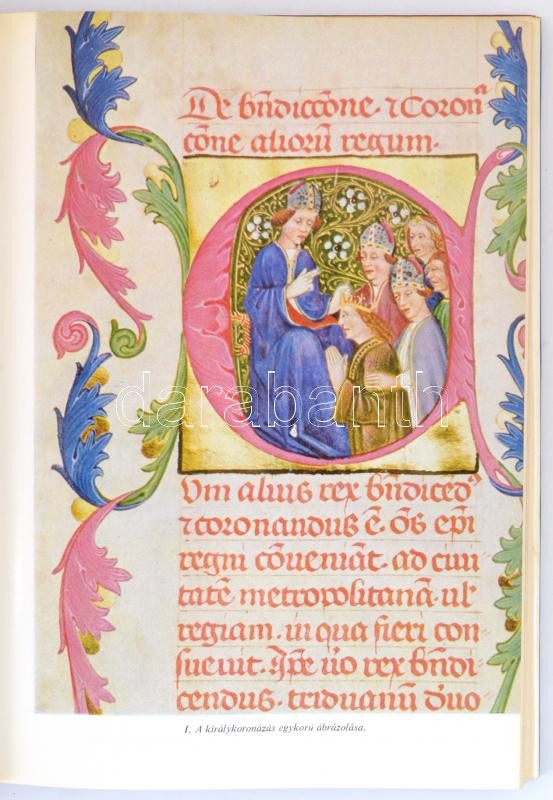 De bn̄diccōne · ⁊ Coronᵃ
cōne alioru̅ regum ·
Vm aliuis rex bn̄diced᷒
⁊ coronandus ē · om̄s ep̄i
regni cōueniāt · ad ciui
tatē metropolitanā · ul̓
regiam · in qua fieri con
sueuit · Ip̄e u̅o rex bn̄di
cendus · triduanu̅ d̓uo
darabanth
1. A királykoronázás egykorú ábrázolása.